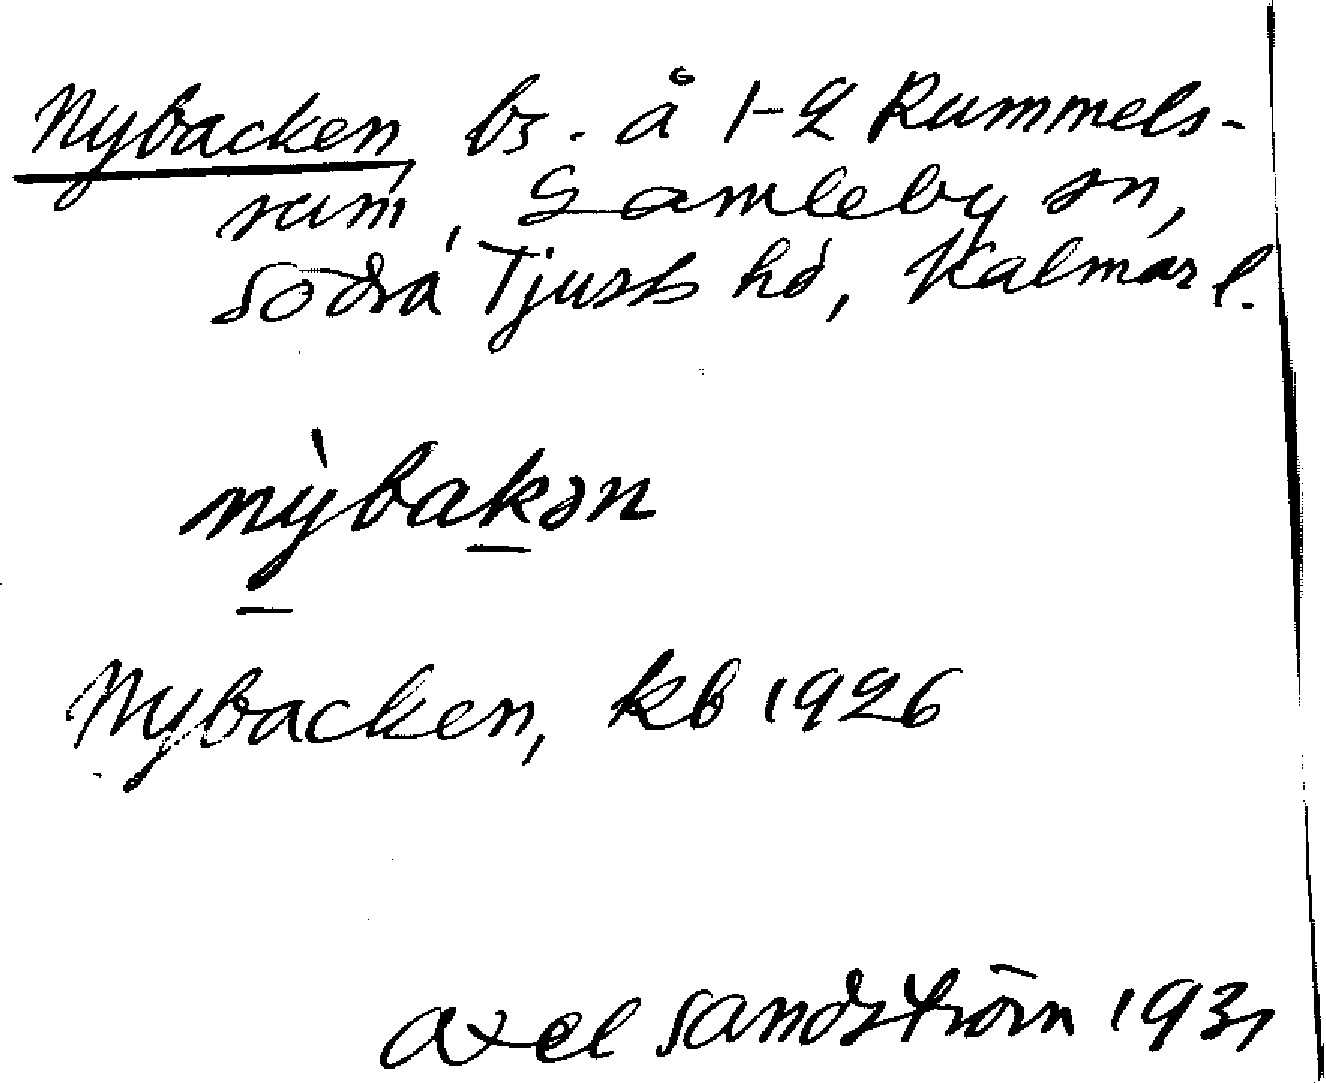 Nybacken, bs. å 1-2 Rummels-
rum, Gamleby sn,
Södra Tjusts hd, Kalmar l.
nỳbakən
Nybacken, kb 1926
Axel Sandström 1931